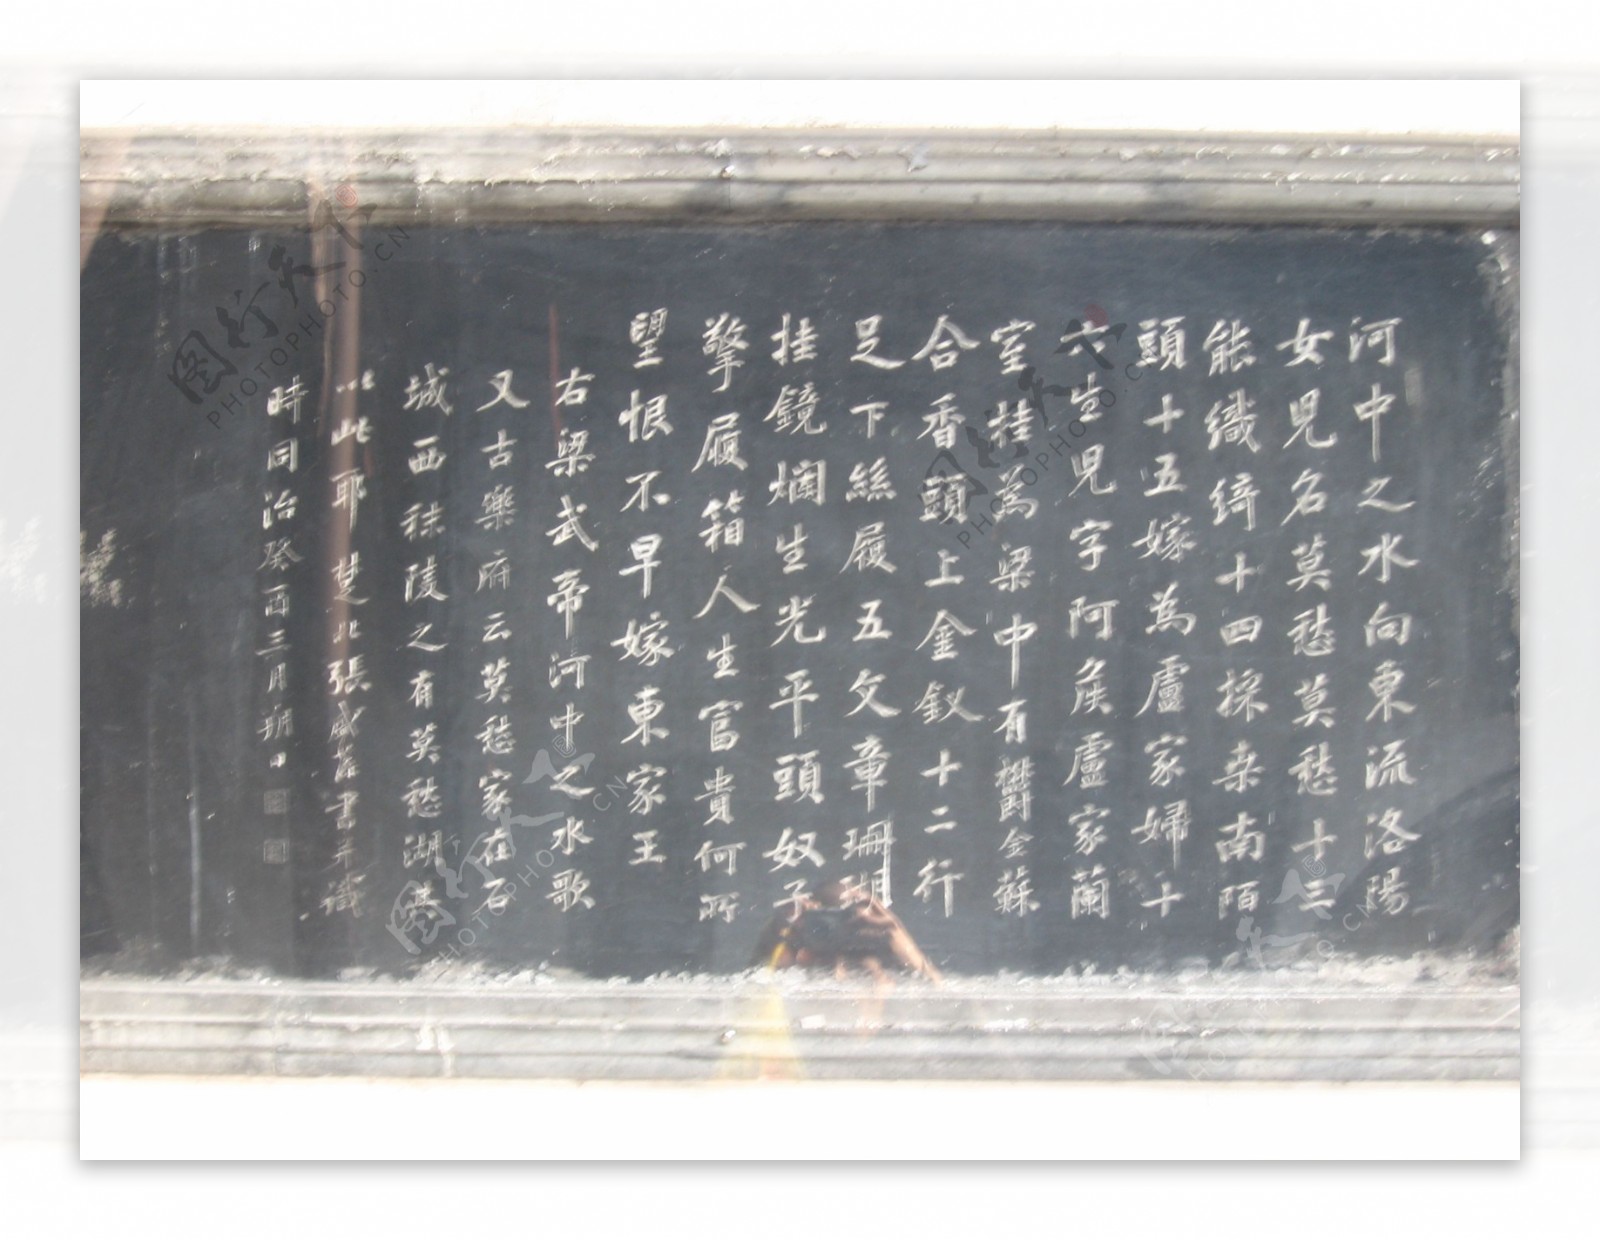 河中之水向東流洛陽
女兒名莫愁莫愁十三
能織綺十四採桒南陌
頭十五嫁為盧家婦十
六生兒字阿矦盧家蘭
室桂為梁中有鬱金蘇
合香頭上金釵十二行
足下絲履五文章珊瑚
挂鏡爛生光平頭奴子
擎履箱人生富貴何所
望恨不早嫁東家王
右梁武帝河中之水歌
又古樂府云莫愁家在石
城西秣陵之有莫愁湖
以此耶楚北張盛藻書并識
時同治癸酉三月朔日
图行天下
PHOTOPHOTO.CN
图行天下
PHOTOPHOTO.CN